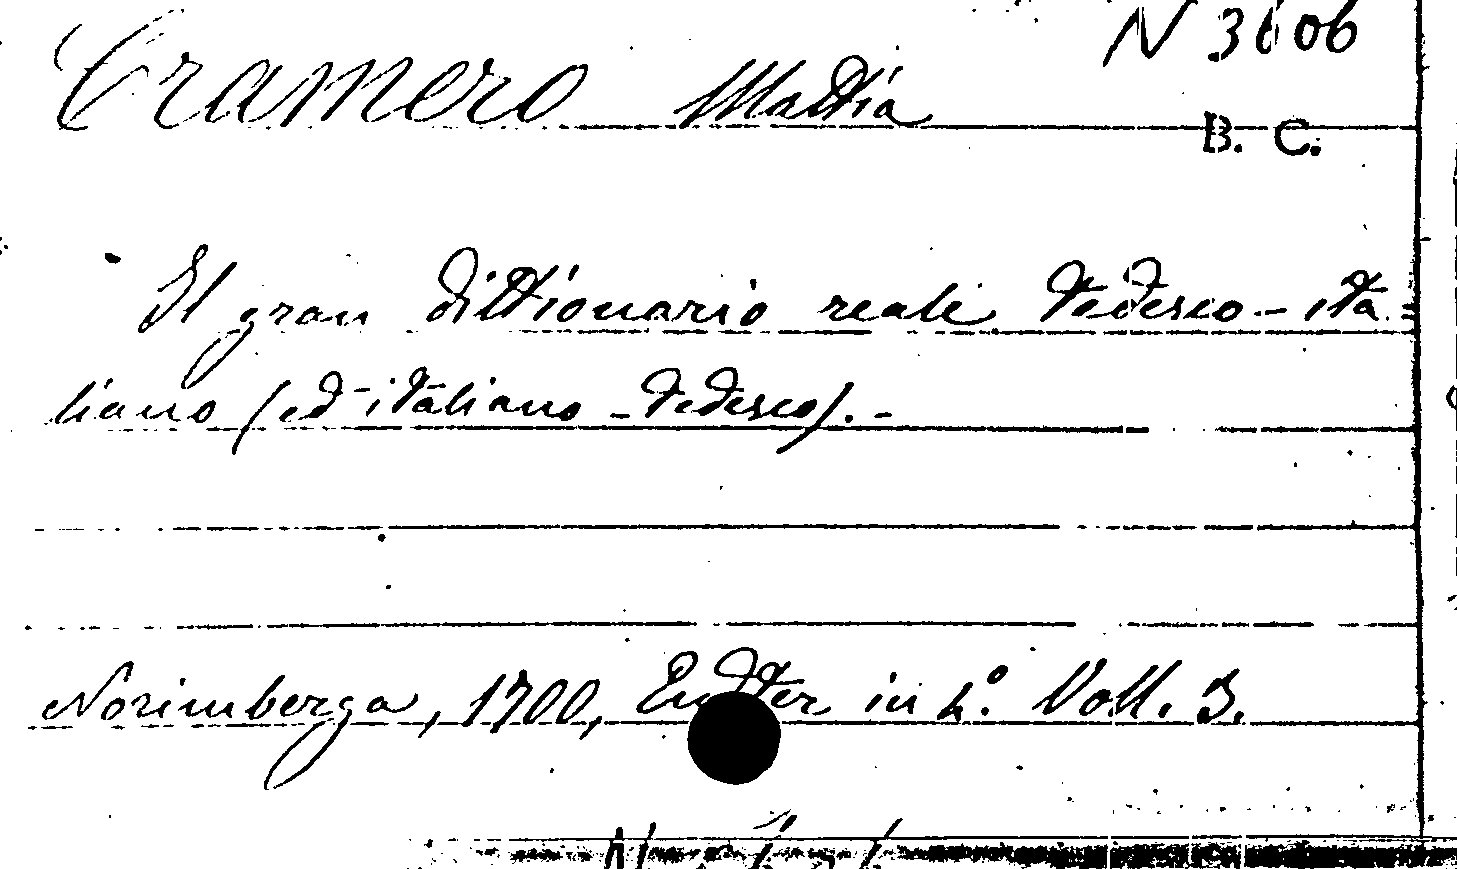 N 3606
Cramero Mattia
B. C.
Il gran dittionario reale tedesco-ita=
liano (ed italiano-tedesco).-
Norimberga, 1700, Endter in 4.° Voll. 3.